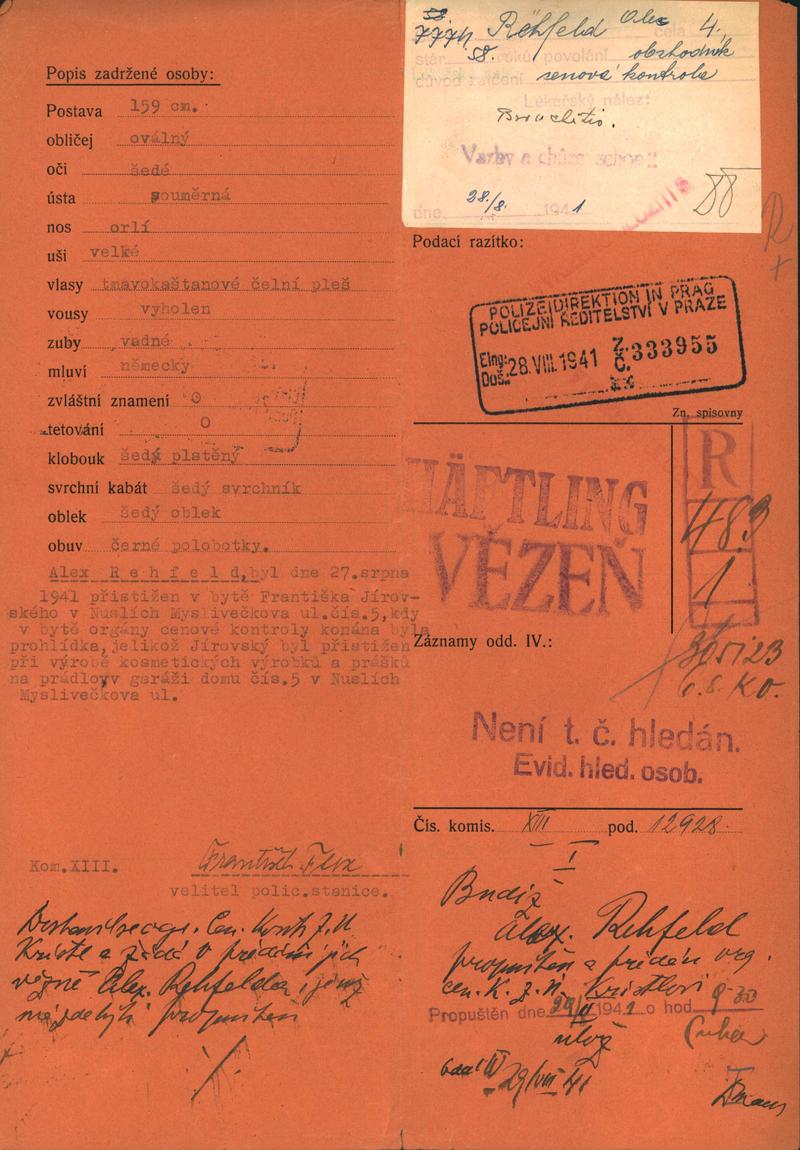 Popis zadržené osoby:
Postava 159 cm.
obličej oválný
oči šedé
ústa souměrná
nos orlí
uši velké
vlasy tmavokaštanové čelní pleš
vousy vyholen
zuby vadné
mluví německy
zvláštní znamení 0
tetování 0
klobouk šedý plstěný
svrchní kabát šedý svrchník
oblek šedý oblek
obuv černé polobotky.
Alex Rehfeld,byl dne 27.srpna
1941 přistižen v bytě Františka Jírov-
ského v Nuslích Myslivečkova ul.čís.5,kdy
v bytě orgány cenové kontroly konána byla
prohlídka,jelikož Jírovský byl přistižen
při výrobě kosmetických výrobků a prášků
na prádlo,v garáži domu čís.5 v Nuslích
Myslivečkova ul.
Kom.XIII.
velitel polic.stanice.
Alex. Rehfelda
propuštění
Rehfeld Alex cela 4.
58. roků povolání obchodník
důvod zatčení cenová kontrola
Lékařský nález:
Bronchitis.
Vazby a chůze schopen
dne 28/8. 1941
Podací razítko:
POLIZEIDIREKTION IN PRAG
POLICEJNÍ ŘEDITELSTVÍ V PRAZE
Elng:
Doš.: 28. VIII. 1941 Z. Č. 333955
Zn. spisovny
HÄFTLING
VĚZEŇ
R
483
1
Záznamy odd. IV.:
Není t. č. hledán.
Evid. hled. osob.
Čís. komis. XIII pod. 12928.
I
Budiž
Alex. Rehfeld
propuštěn a předán org.
cen. K. Z. N. Kristlovi
Propuštěn dne 1941 o hod
29/VIII 41